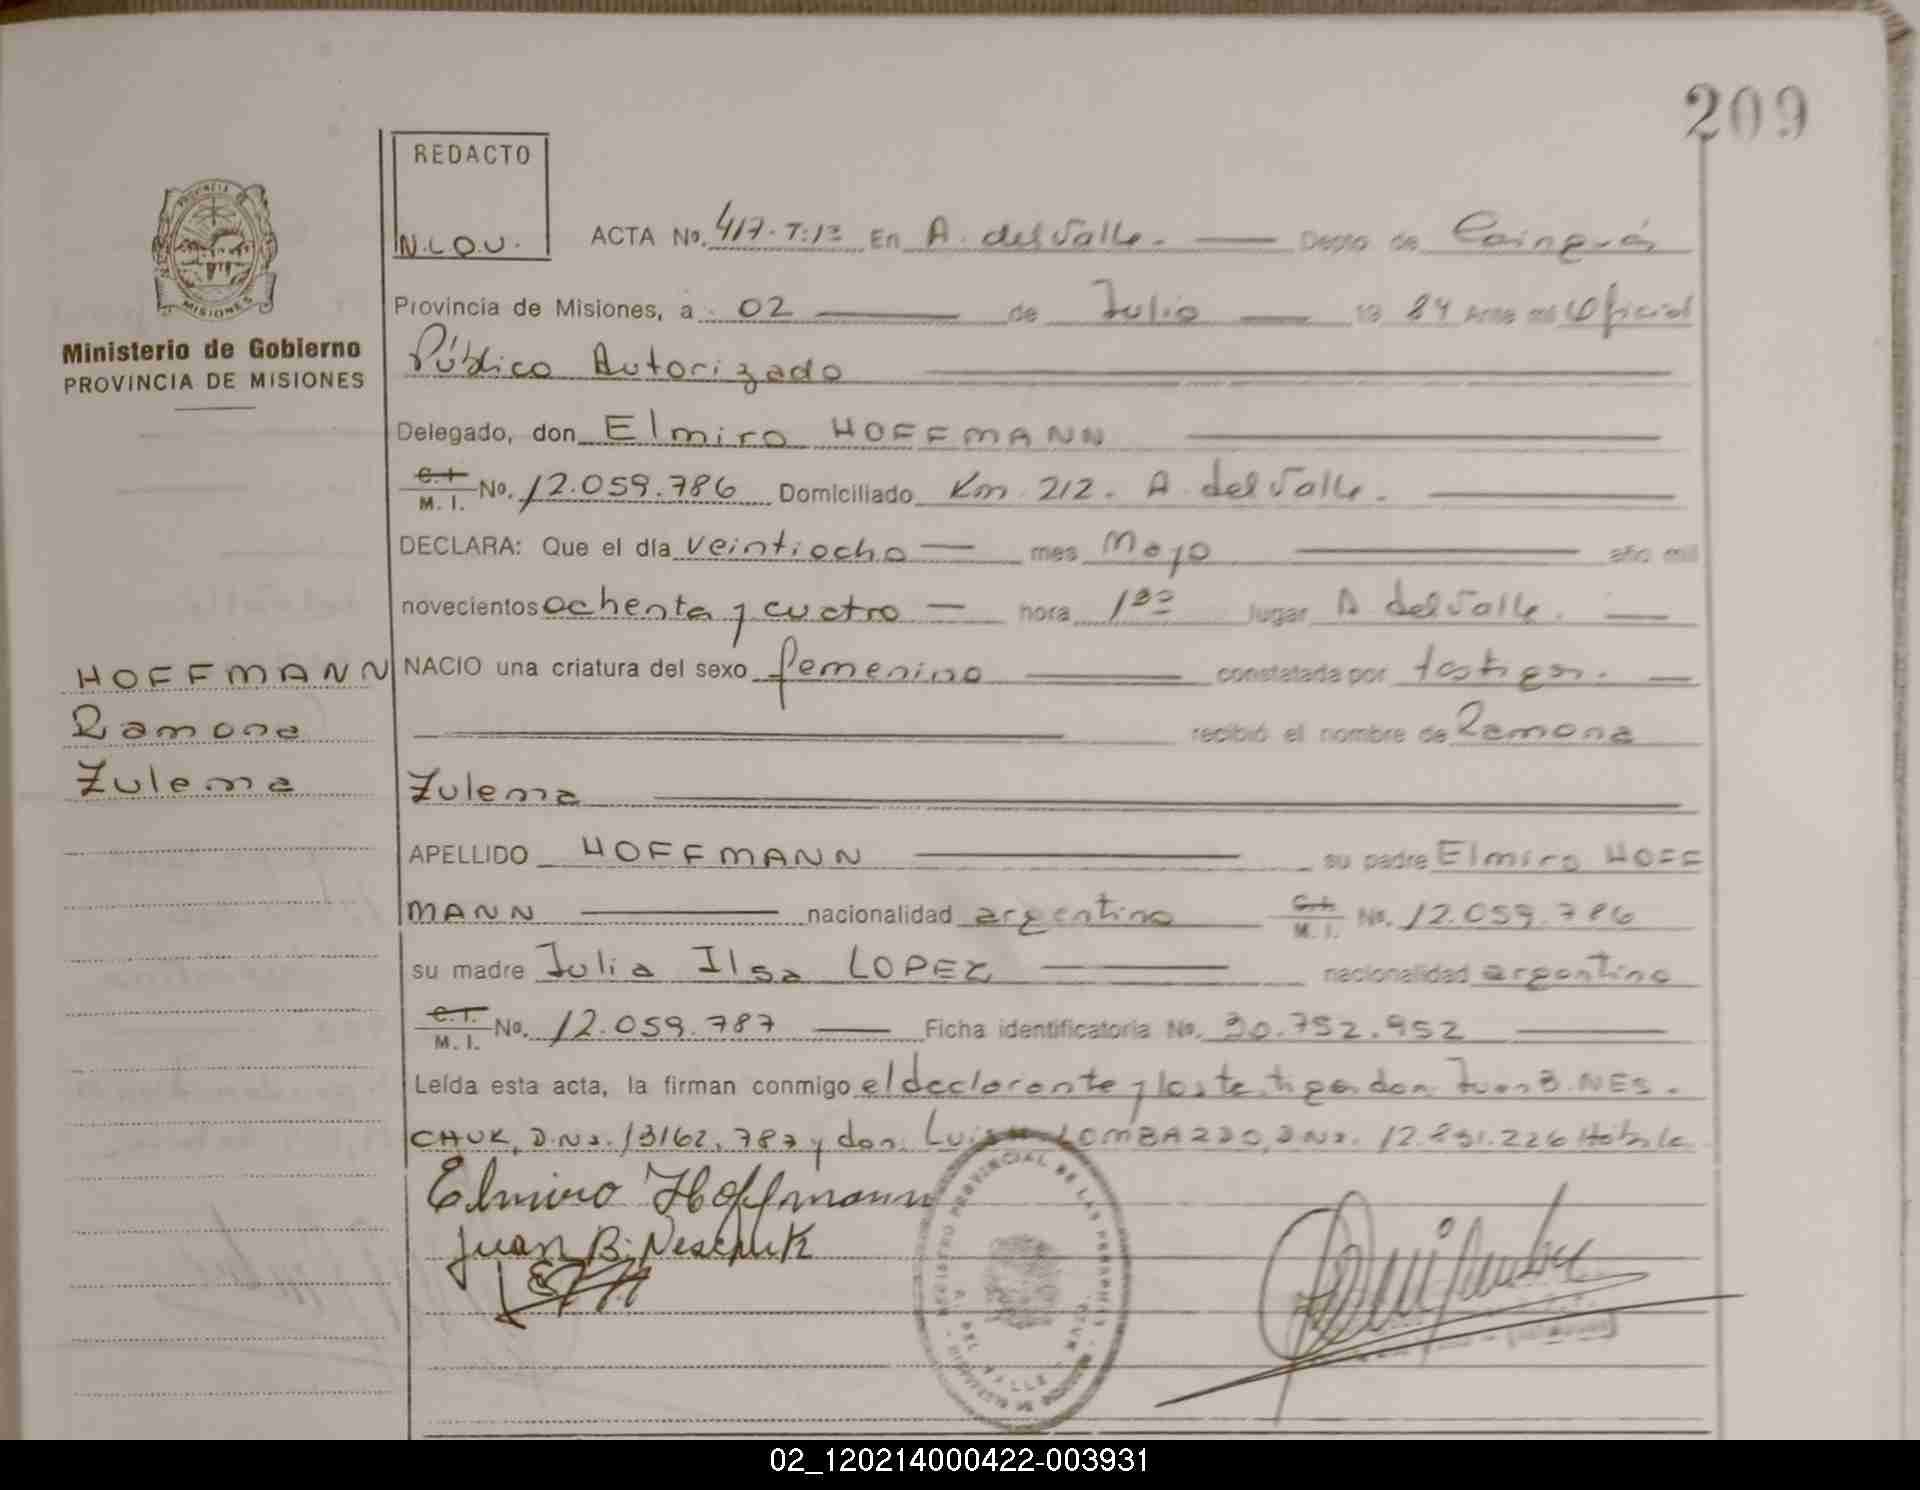 209
REDACTO
N.L.O.U.
ACTA No. 417. T:1º En A. del Valle. Depto de Cainguás
Provincia de Misiones, a 02 de Julio 19 84 Ante mi Oficial
Público Autorizado
Ministerio de Gobierno
PROVINCIA DE MISIONES
Delegado, don Elmiro HOFFMANN
C.I. M. I. No. 12.059.786 Domiciliado Km. 212. A. del Valle.
DECLARA: Que el día veintiocho mes Mayo año mil
novecientos ochenta y cuatro hora 1 lugar A del Valle.
HOFFMANN
Ramona
Zulema
NACIO una criatura del sexo femenino constatada por testigos.
recibió el nombre de Ramona
Zulema
APELLIDO HOFFMANN su padre Elmiro HOFF
MANN nacionalidad argentino C.I. M. I. No. 12.059.786
su madre Julia Ilsa LOPEZ nacionalidad argentina
C.I. M. I. No. 12.059.787 Ficha identificatoria No. 30.752.952
Leída esta acta, la firman conmigo el declarante y los testigos don Juan B. NES.
CHUK, D.N.I. 13162.787 y don Luis LOMBARDO, DNI. 12.891.226 Hábiles
Elmiro Hoffmann
Juan B. Neschuk
REGISTRO PROVINCIAL DE LAS PERSONAS
A. DEL VALLE
02_120214000422-003931